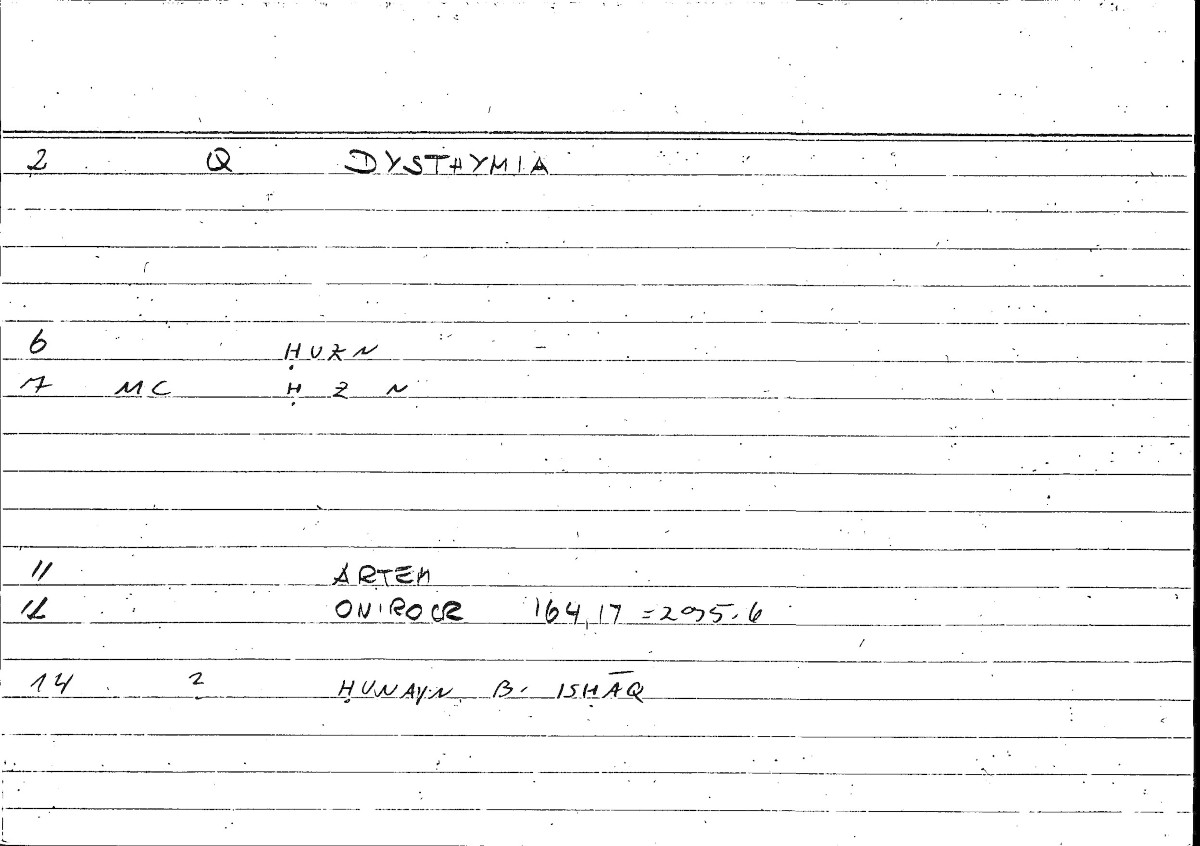 2 Q DYSTHYMIA
6 ḤUZN
7 MC Ḥ Z N
11 ARTEM
12 ONIROCR 164,17 = 295.6
14 2 ḤUNAYN B. ISḤĀQ